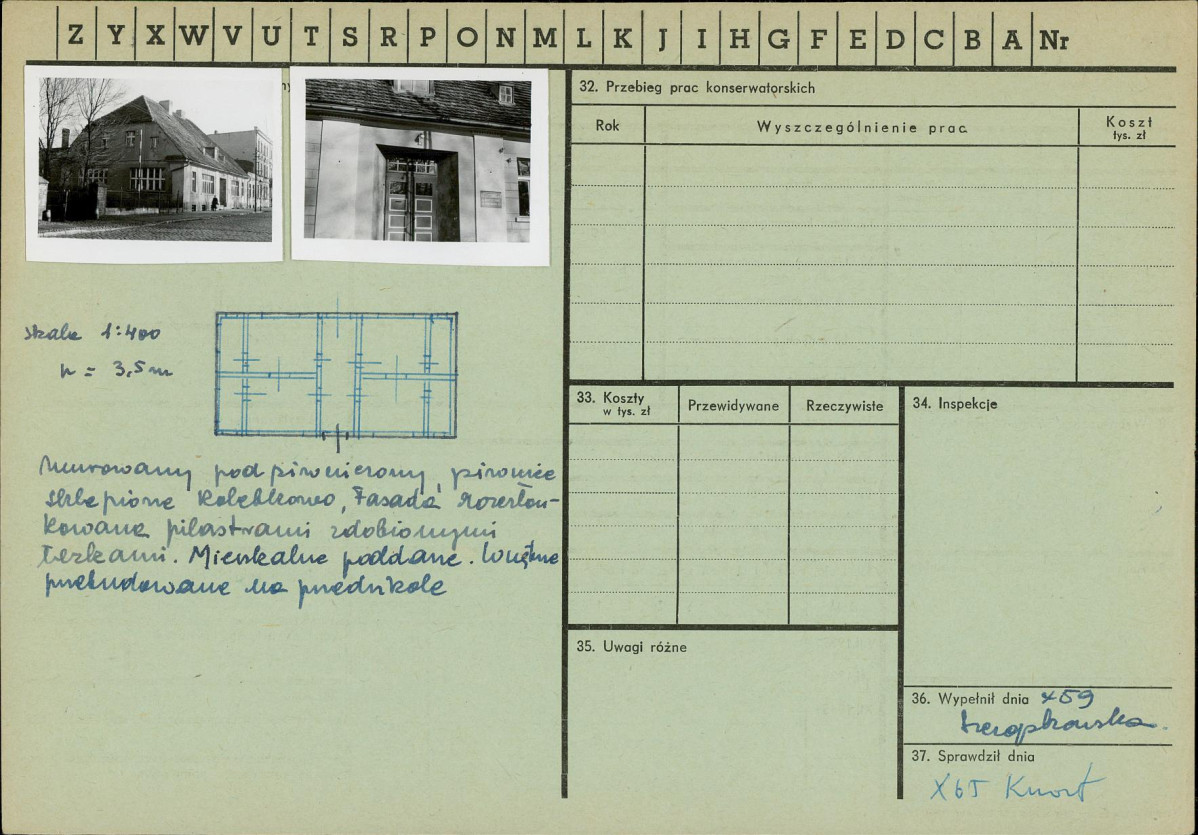 Z Y X W V U T S R P O N M L K J I H G F E D C B A Nr
32. Przebieg prac konserwatorskich
Rok
Wyszczególnienie prac.
Koszt
tys. zł
skala 1:400
h = 3,5 m
Murowany podpiwniczony, piwnice
sklepione kolebkowo, Fasada rozczłon-
kowana pilastrami zdobionymi
łezkami. Mieszkalne poddasze. Wnętrze
przebudowane na przedszkole
33. Koszty
w tys. zł
Przewidywane
Rzeczywiste
34. Inspekcje
35. Uwagi różne
36. Wypełnił dnia
37. Sprawdził dnia